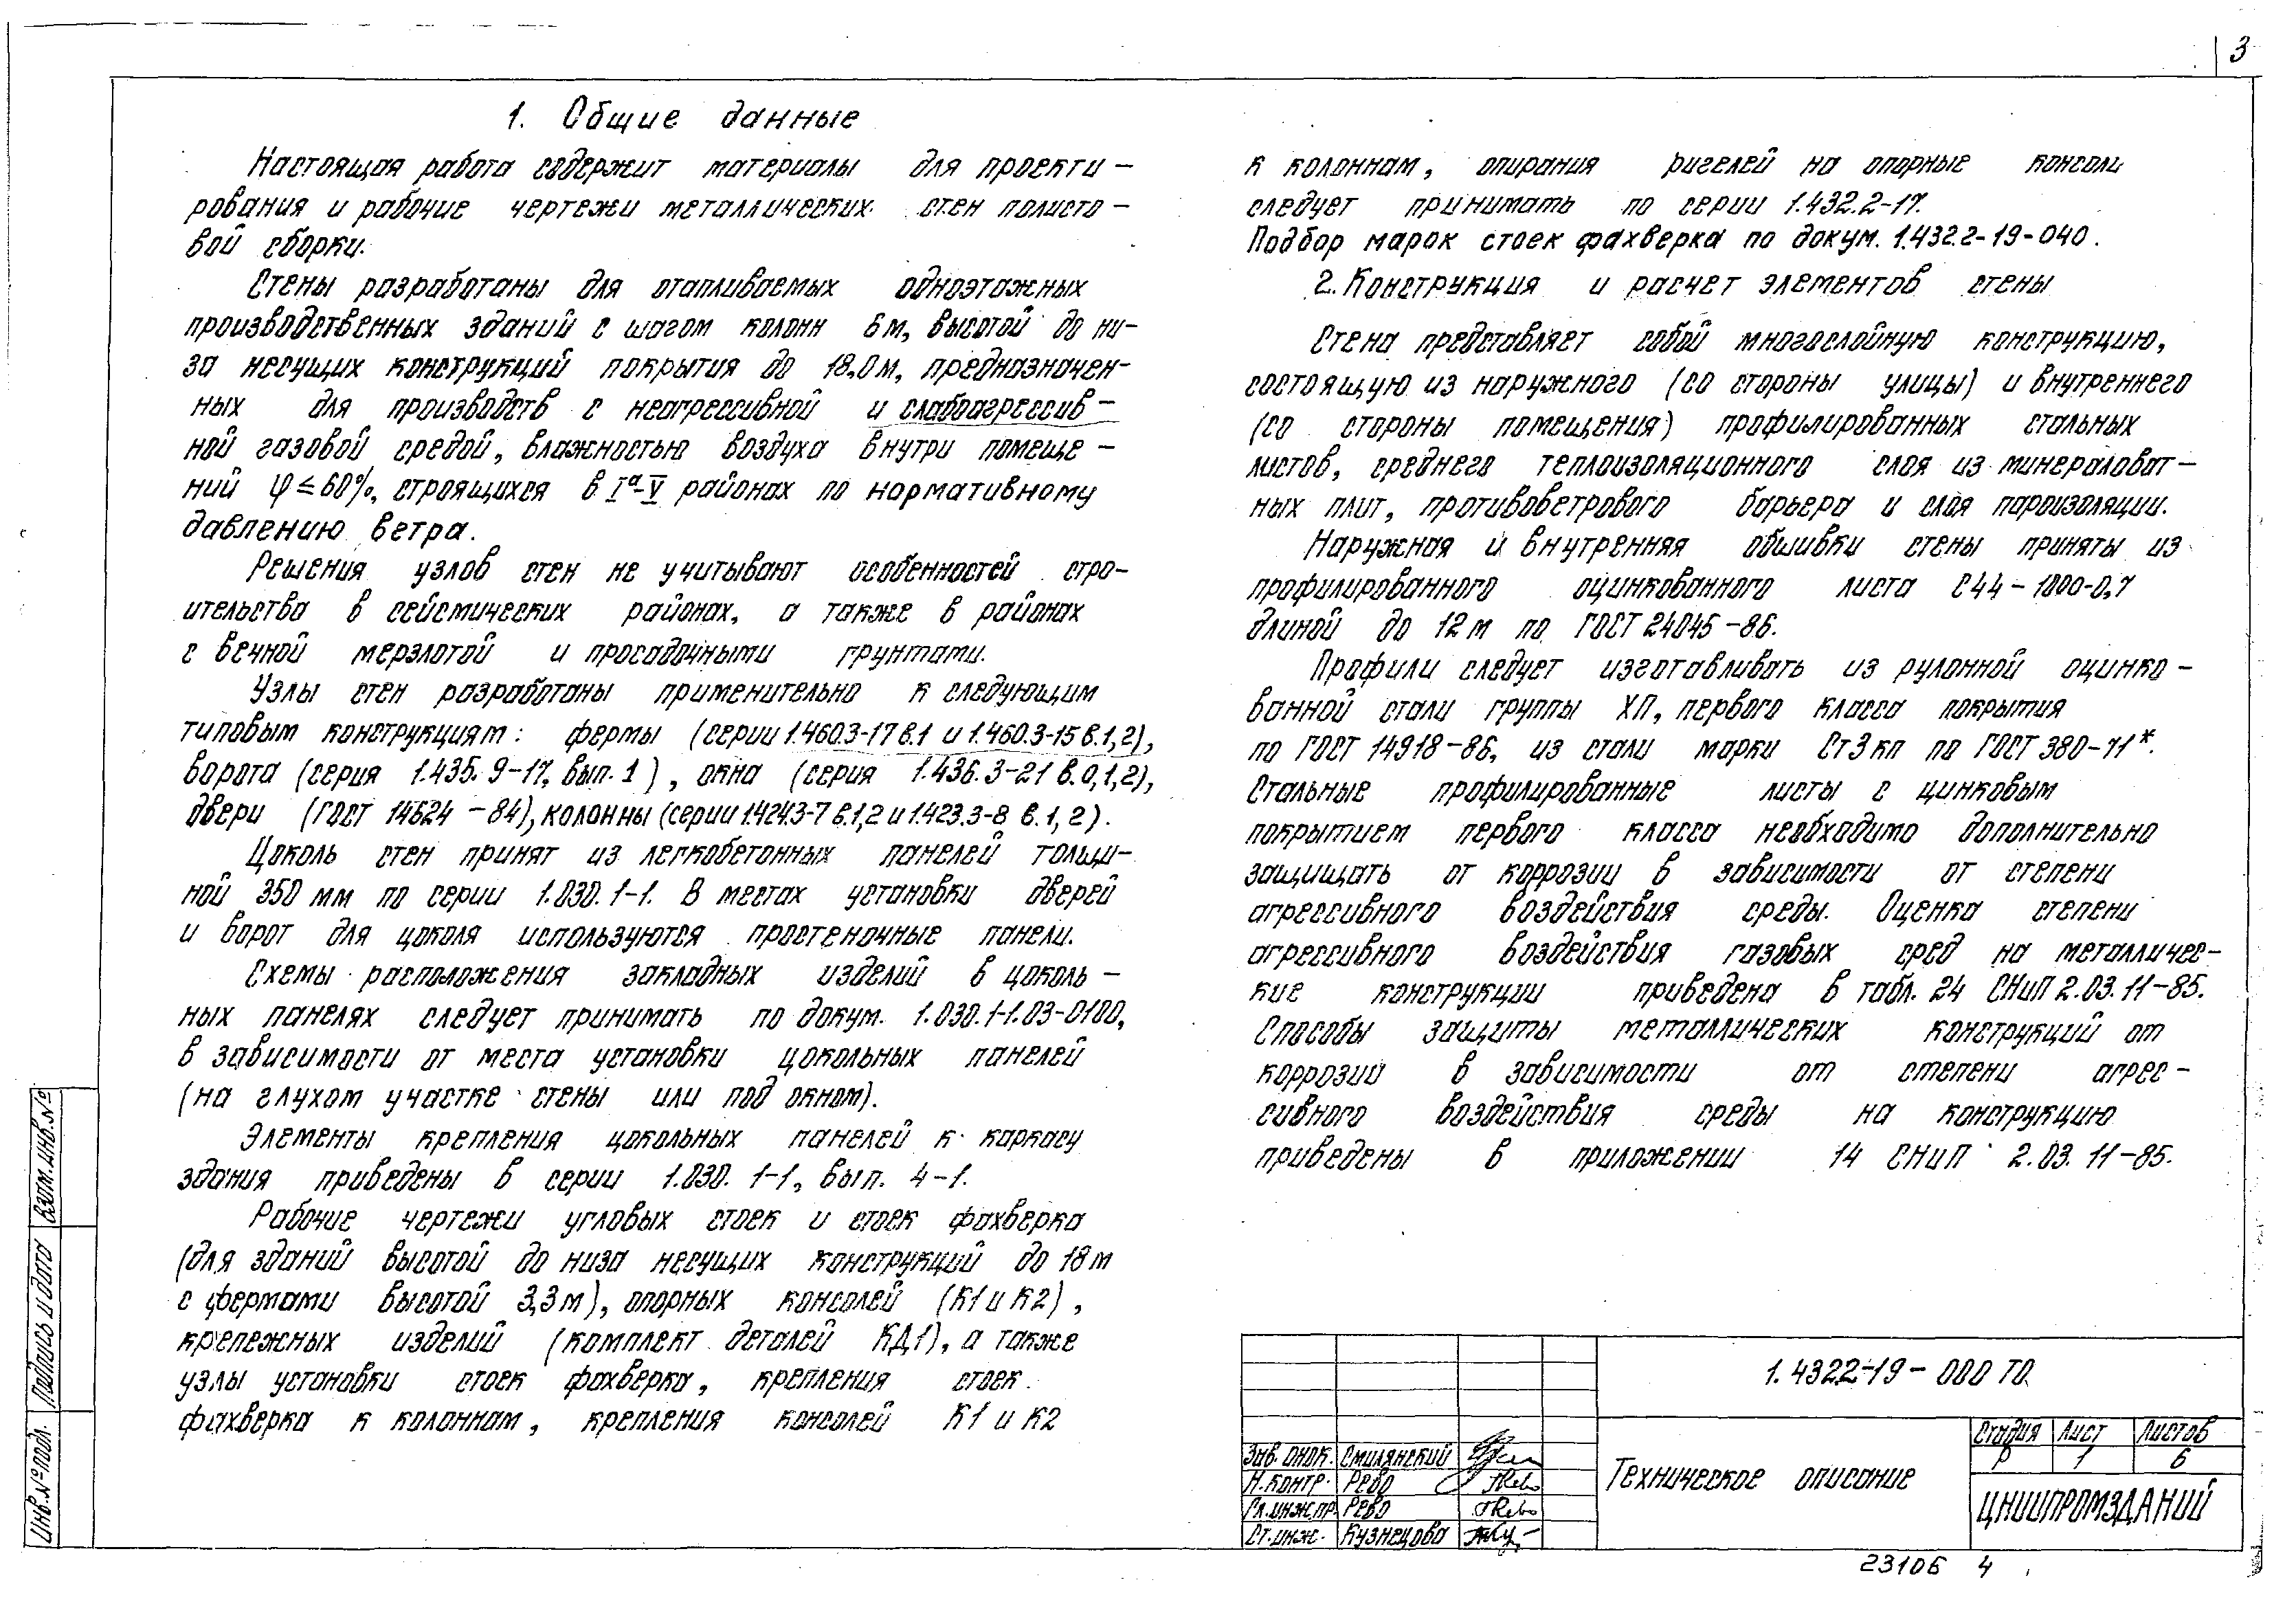 3
1. Общие данные
Настоящая работа содержит материалы для проекти-
рования и рабочие чертежи металлических стен полисто-
вой сборки.
Стены разработаны для отапливаемых одноэтажных
производственных зданий с шагом колонн 6м, высотой до ни-
за несущих конструкций покрытия до 18,0м, предназначен-
ных для производств с неагрессивной и слабоагрессив-
ной газовой средой, влажностью воздуха внутри помеще-
ний φ≤60%, строящихся в Iа-V районах по нормативному
давлению ветра.
Решения узлов стен не учитывают особенностей стро-
ительства в сейсмических районах, а также в районах
с вечной мерзлотой и просадочными грунтами.
Узлы стен разработаны применительно к следующим
типовым конструкциям: фермы (серии 1.460.3-17 в.1 и 1.460.3-15 в.1,2),
ворота (серия 1.435.9-17, вып. 1), окна (серия 1.436.3-21 в.0,1,2),
двери (ГОСТ 14624-84), колонны (серии 1.424.3-7 в.1,2 и 1.423.3-8 в.1,2).
Цоколь стен принят из легкобетонных панелей толщи-
ной 350 мм по серии 1.030.1-1. В местах установки дверей
и ворот для цоколя используются простеночные панели.
Схемы расположения закладных изделий в цоколь-
ных панелях следует принимать по докум. 1.030.1-1.03-0100,
в зависимости от места установки цокольных панелей
(на глухом участке стены или под окном).
Элементы крепления цокольных панелей к каркасу
здания приведены в серии 1.030.1-1, вып. 4-1.
Рабочие чертежи угловых стоек и стоек фахверка
(для зданий высотой до низа несущих конструкций до 18м
с фермами высотой 3,3м), опорных консолей (К1 и К2),
крепежных изделий (комплект деталей КД1), а также
узлы установки стоек фахверка, крепления стоек
фахверка к колоннам, крепления консолей К1 и К2
к колоннам, опирания ригелей на опорные консоли
следует принимать по серии 1.432.2-17.
Подбор марок стоек фахверка по докум. 1.432.2-19-040.
2. Конструкция и расчет элементов стены
Стена представляет собой многослойную конструкцию,
состоящую из наружного (со стороны улицы) и внутреннего
(со стороны помещения) профилированных стальных
листов, среднего теплоизоляционного слоя из минераловат-
ных плит, противоветрового барьера и слоя пароизоляции.
Наружная и внутренняя обшивки стены приняты из
профилированного оцинкованного листа С44-1000-0,7
длиной до 12м по ГОСТ 24045-86.
Профили следует изготавливать из рулонной оцинко-
ванной стали группы ХП, первого класса покрытия
по ГОСТ 14918-86, из стали марки Ст3кп по ГОСТ 380-71*.
Стальные профилированные листы с цинковым
покрытием первого класса необходимо дополнительно
защищать от коррозии в зависимости от степени
агрессивного воздействия среды. Оценка степени
агрессивного воздействия газовых сред на металличес-
кие конструкции приведена в табл. 24 СНиП 2.03.11-85.
Способы защиты металлических конструкций от
коррозии в зависимости от степени агрес-
сивного воздействия среды на конструкцию
приведены в приложении 14 СНиП 2.03.11-85.
1.432.2-19-000 ТО
Зав. ОНОК. Смилянский
Н.контр. Рево
Гл.инж.пр. Рево
Ст.инж. Кузнецова
Техническое описание
Стадия Лист Листов
Р 1 6
ЦНИИПРОМЗДАНИЙ
Инв.№подл. Подпись и дата Взам.инв.№
23106 4